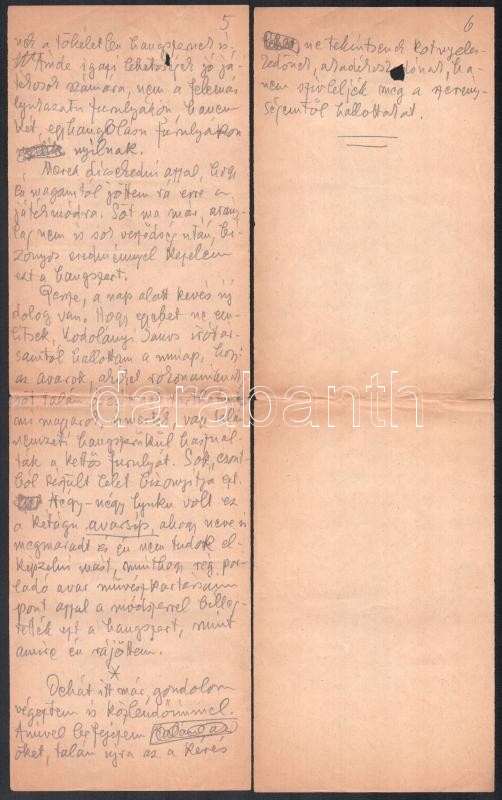 5
nek a tökéletlen hangszernek is,
Minde igazi lehetőségek jó já-
tékosok számára, nem a felemás
lyukazatú furulyákon, hanem
két, egyhangolású furulyákon
nyílnak.
Merek dicsekedni azzal, hogy
én magamtól jöttem rá erre a
játékmódra. Sőt ma már, arány-
lag nem is sok vesződség után, bi-
zonyos eredménnyel kezelem
ezt a hangszert.
Persze, a nap alatt kevés új
dolog van. Hogy egyebet ne em-
lítsek, Kodolányi János írótár-
samtól hallottam a minap, hogy
az avarok, akiket rokonainknak
talán
mi magyarok,
nemzeti hangszerükül használ-
ták a kettős furulyát. Sok, csont-
ból készült lelet bizonyítja ezt.
Négy-négy lyuku volt ez
a kétágú avarsíp, ahogy neve is
megmaradt és én nem tudok el-
képzelni mást, minthogy rég por-
ladó avar művészkartársaim
pont azzal a módszerrel billeg-
tették ezt a hangszert, mint
amire én rájöttem.
*
Dehát itt már, gondolom
végeztem is közlendőimmel.
Amivel befejezem
őket, talán újra az a kérés
6
ne tekintsenek kotnyeles-
kedőnek,
nem szíveljék meg a szerény-
ségemtől hallottakat.
darabanth